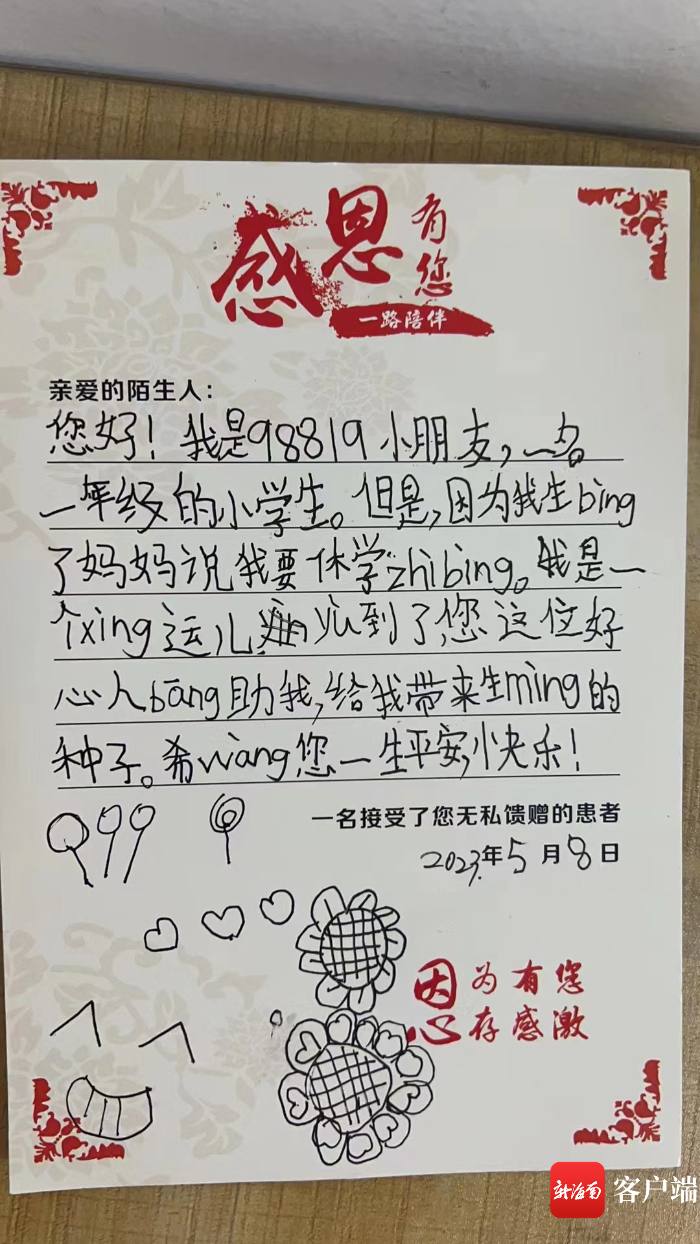 感恩有您
一路陪伴
亲爱的陌生人：
您好！我是98819小朋友，一名
一年级的小学生。但是，因为我生bìng
了妈妈说我要休学zhìbìng。我是一
个xìng运儿 yù到了您这位好
心人bāng助我，给我带来生mìng的
种子。希wàng您一生平安，快乐！
一名接受了您无私馈赠的患者
2023.年5月8日
因为有您
心存感激
新海南 客户端